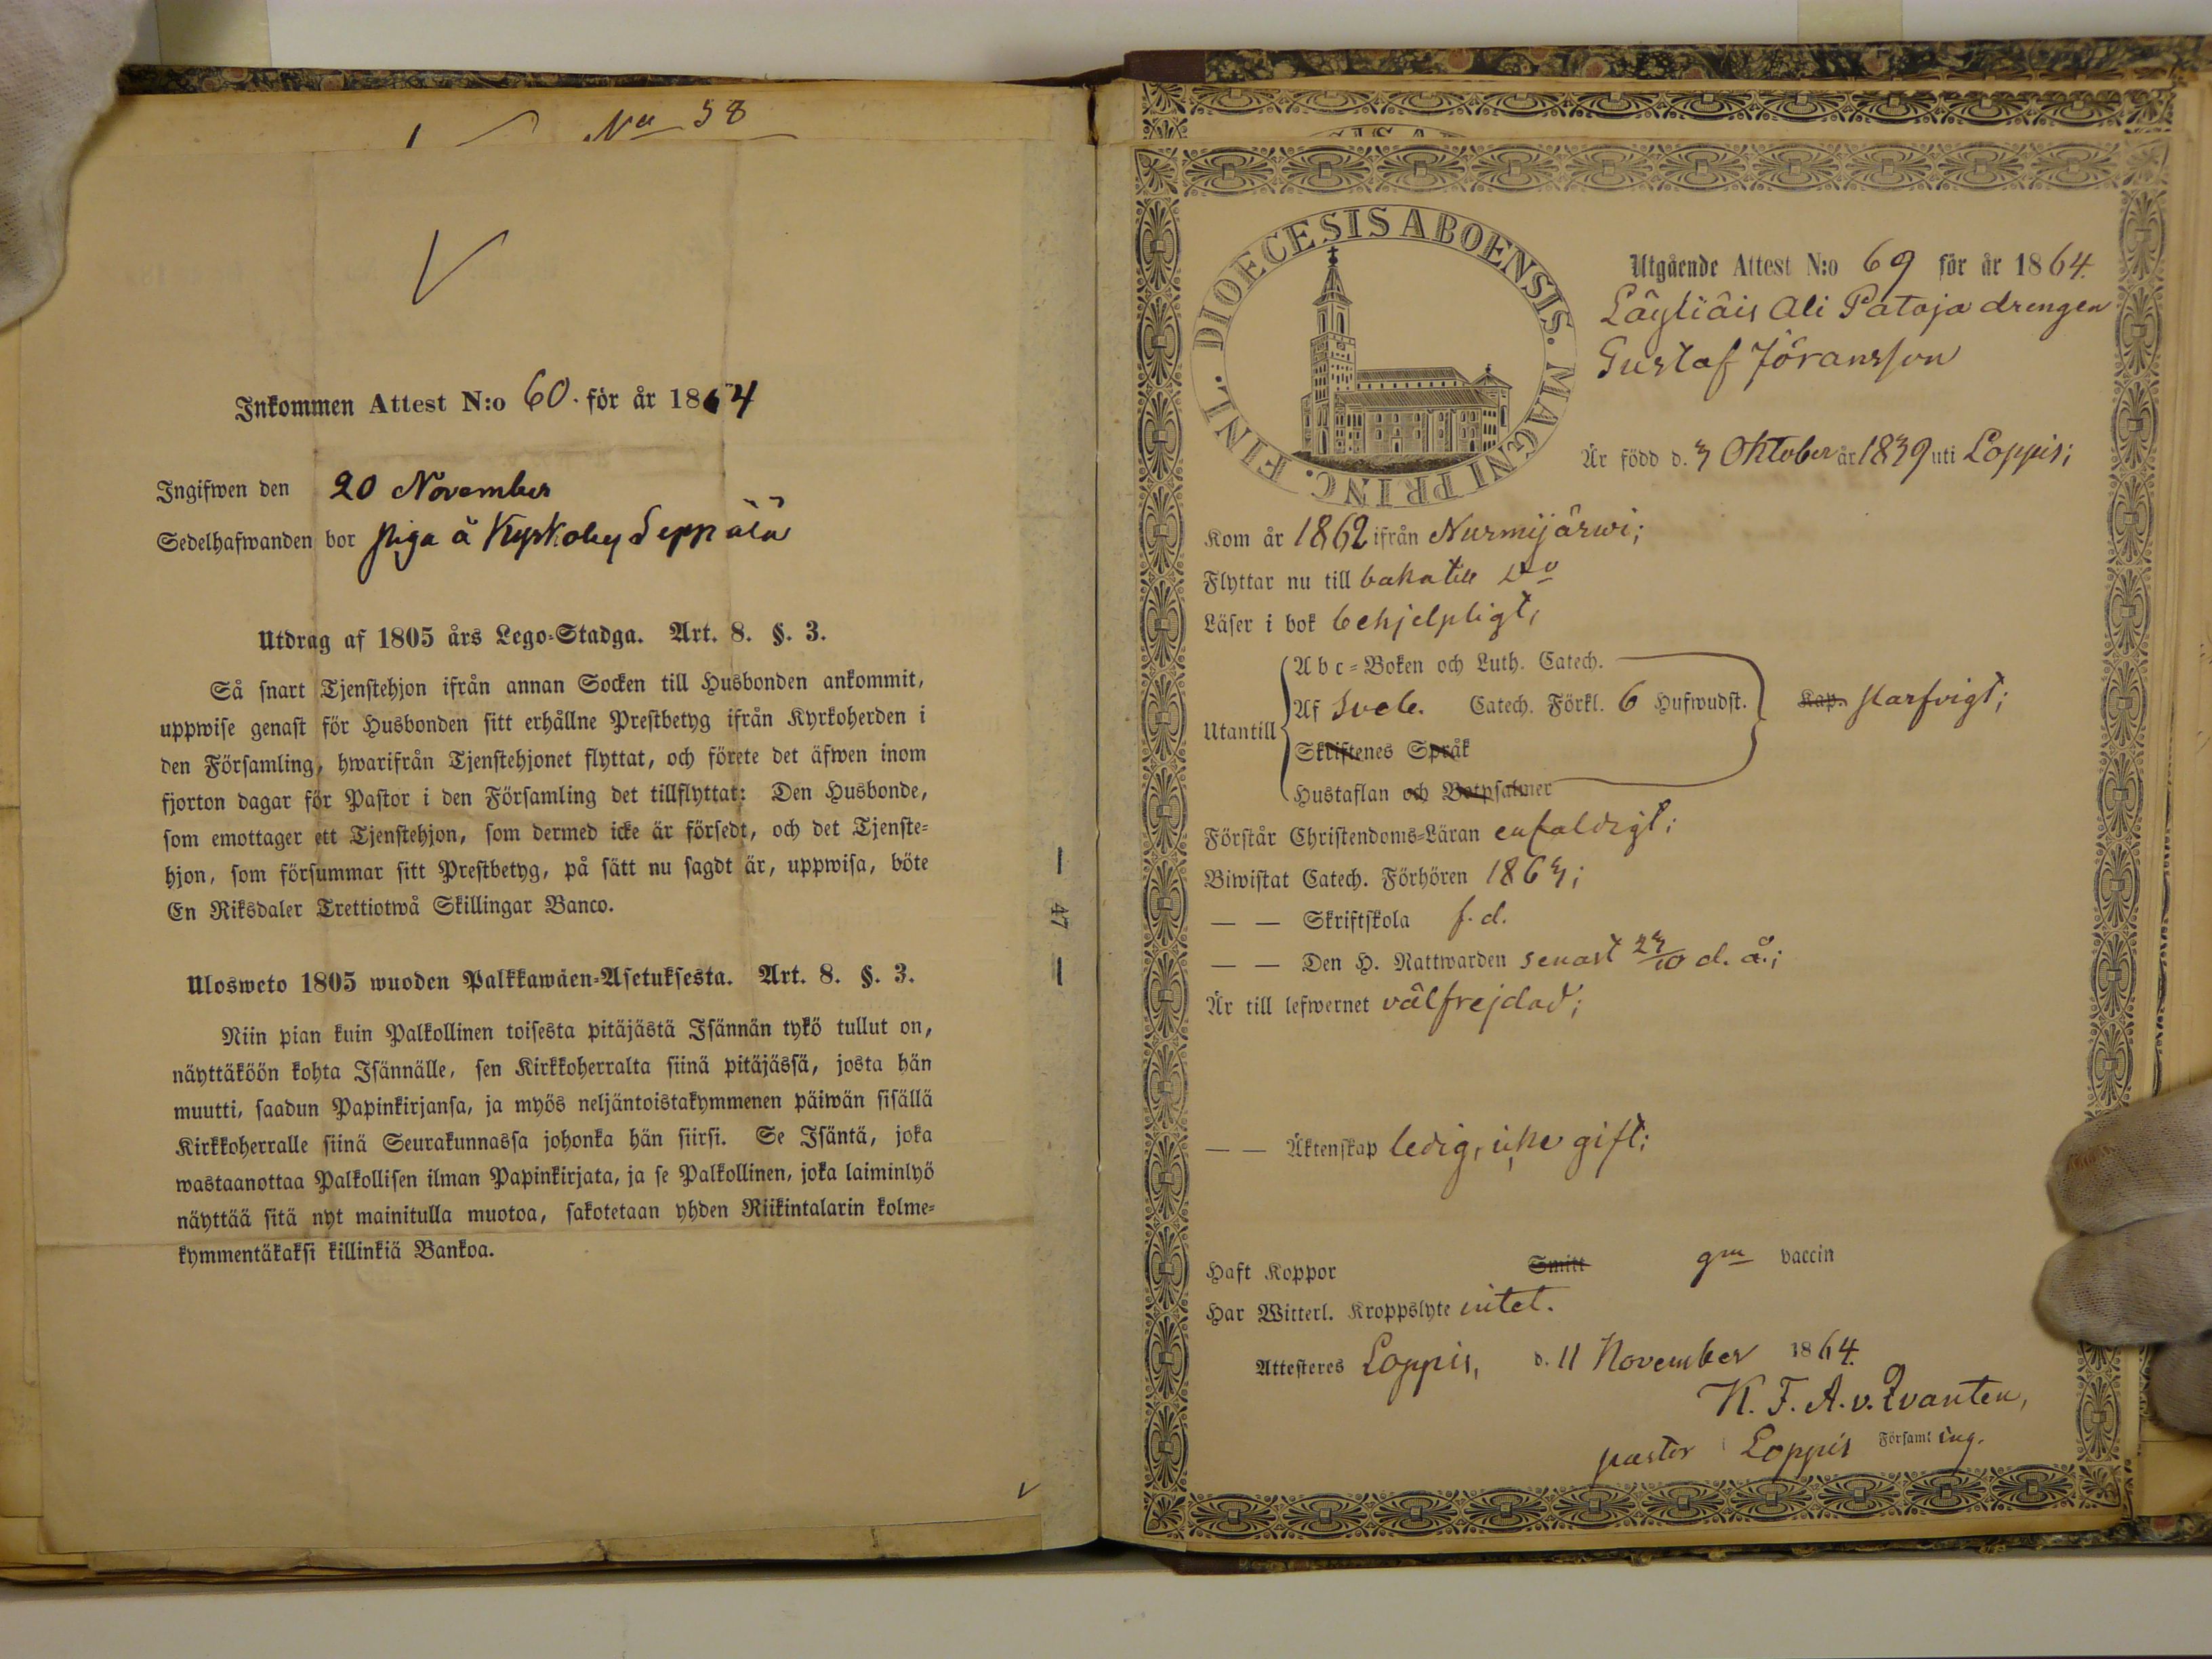 No 58
Inkommen Attest N:o 60. för år 1864
Ingifwen den 20 November
Sedelhafwanden bor piga å Kyrkoby Seppälä
Utdrag af 1805 års Lego-Stadga. Art. 8. §. 3.
Så snart Tjenstehjon ifrån annan Socken till Husbonden ankommit,
uppwise genast för Husbonden sitt erhållne Prestbetyg ifrån Kyrkoherden i
den Församling, hwarifrån Tjenstehjonet flyttat, och förete det äfwen inom
fjorton dagar för Pastor i den Församling det tillflyttat: Den Husbonde,
som emottager ett Tjenstehjon, som dermed icke är försedt, och det Tjenste-
hjon, som försummar sitt Prestbetyg, på sätt nu sagdt är, uppwisa, böte
En Riksdaler Trettiotwå Skillingar Banco.
Ulosweto 1805 wuoden Palkkawäen-Asetuksesta. Art. 8. §. 3.
Niin pian kuin Palkollinen toisesta pitäjästä Isännän tykö tullut on,
näyttäköön kohta Isännälle, sen Kirkkoherralta siinä pitäjässä, josta hän
muutti, saadun Papinkirjansa, ja myös neljäntoistakymmenen päiwän sisällä
Kirkkoherralle siinä Seurakunnassa johonka hän siirsi. Se Isäntä, joka
wastaanottaa Palkollisen ilman Papinkirjata, ja se Palkollinen, joka laiminlyö
näyttää sitä nyt mainitulla muotoa, sakotetaan yhden Riikintalarin kolme-
kymmentäkaksi killinkiä Bankoa.
— 47 —
DIOECESIS ABOENSIS. MAGNI PRINC. FINL.
Utgående Attest N:o 69 för år 1864.
Läyliäis Ali Patoja drengen
Gustaf Jöransson
Är född d. 3 Oktober år 1839 uti Loppis;
Kom år 1862 ifrån Nurmijärwi;
Flyttar nu till baka till do
Läser i bok behjelpligt,
Utantill
Abc-Boken och Luth. Catech.
Af Sveb. Catech. Förkl. 6 Hufwudst. Kap. skarfvigt;
Skriftenes Språk
Hustaflan och Botpsalmer
Förstår Christendoms-Läran enfaldigt;
Biwistat Catech. Förhören 1863;
— — Skriftskola f. d.
— — Den H. Nattwarden senast 23/10 d. å.;
Är till lefwernet välfrejdad;
— — Äktenskap ledig, icke gift;
Haft Koppor Smitt gm vaccin
Har Witterl. Kroppslyte intet.
Attesteres Loppis, d. 11 November 1864.
K. F. A. v. Qvanten,
pastor i Loppis Församling.